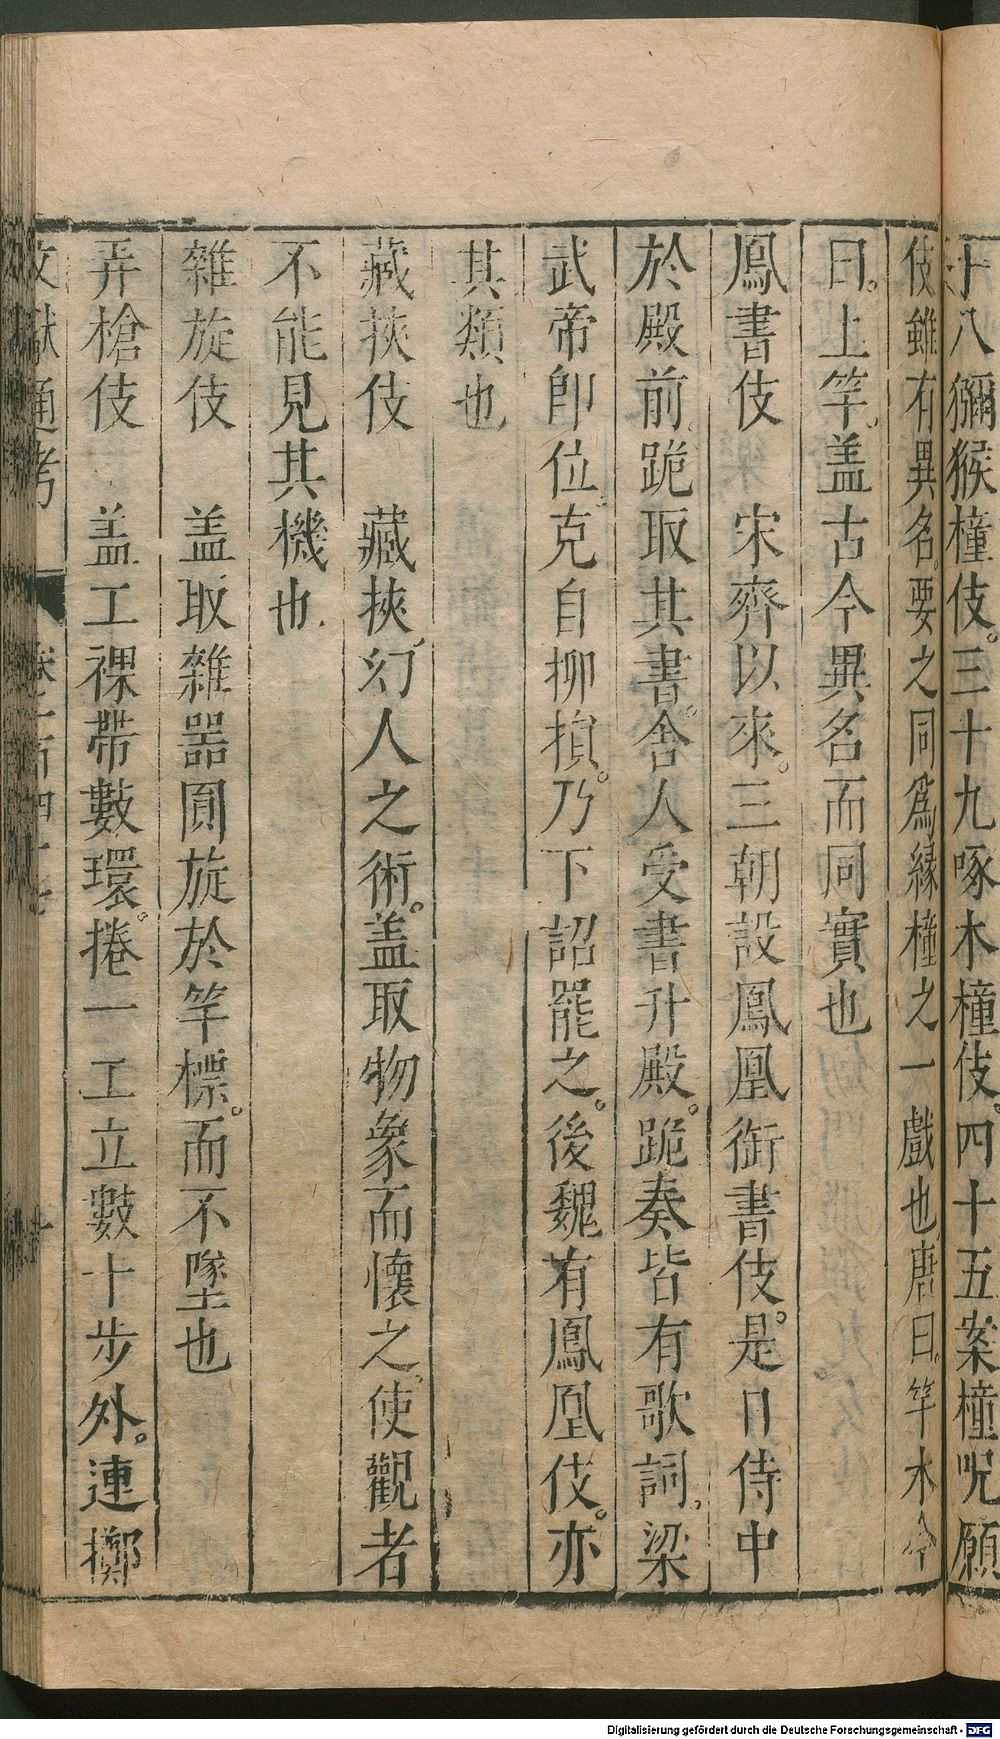 十八獼猴橦伎。三十九啄木橦伎。四十五案橦呪願
伎雖有異名。要之同爲緣橦之一戲也唐曰。竿木今
曰。上竿。盖古今異名而同實也
鳳書伎　宋齊以來。三朝設鳳凰銜書伎。是日侍中
於殿前。跪取其書。舍人受書升殿。跪奏皆有歌詞。梁
武帝卽位。克自抑損。乃下詔罷之。後魏有鳳凰伎。亦
其類也
藏挾伎　藏挾幻人之術。盖取物象而懷之。使觀者
不能見其機也
雜旋伎　盖取雜器圓旋於竿標。而不墜也
弄槍伎　盖工裸帶數環。捲一工立數十步外。連擲
文獻通考　卷一百四十七
Digitalisierung gefördert durch die Deutsche Forschungsgemeinschaft - DFG